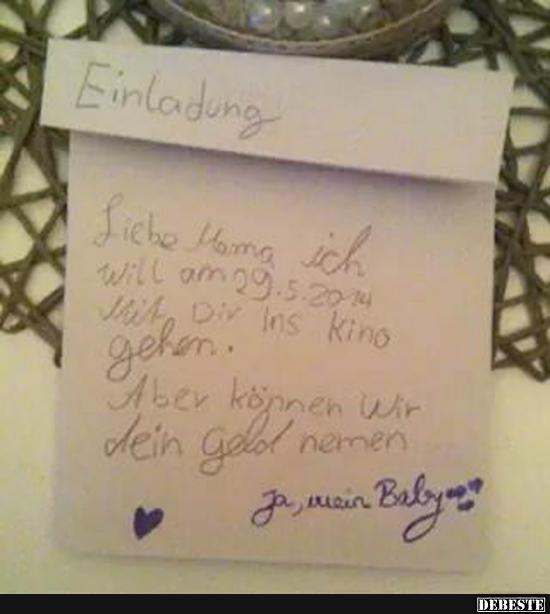 Einladung
Liebe Mama ich
will am 29.5.2014
Mit Dir ins Kino
gehen.
Aber können wir
dein Geld nemen
Ja, mein Baby
DEBESTE